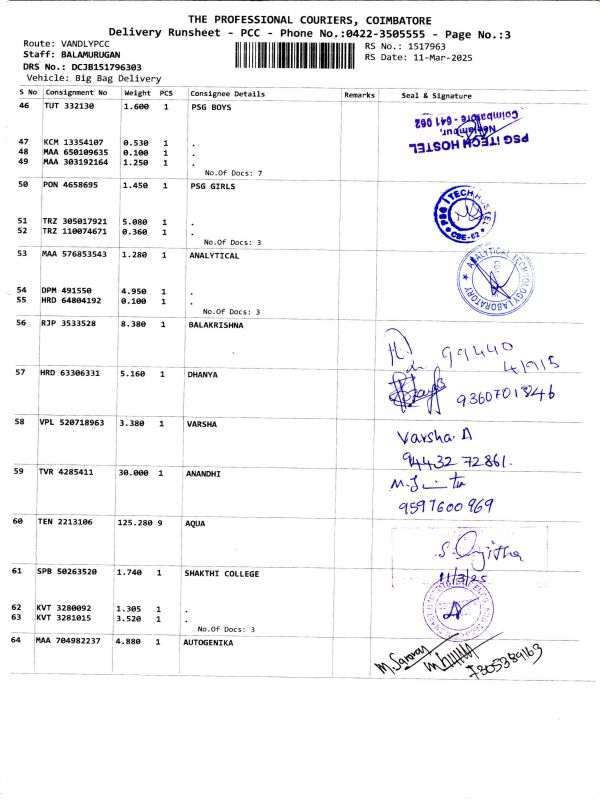 THE PROFESSIONAL COURIERS, COIMBATORE
Delivery Runsheet - PCC - Phone No.:0422-3505555 - Page No.:3
Route: VANDLYPCC
RS No.: 1517963
Staff: BALAMURUGAN
RS Date: 11-Mar-2025
DRS No.: DCJB151796303
Vehicle: Big Bag Delivery
S No Consignment No Weight PCS Consignee Details Remarks Seal & Signature
46 TUT 332130 1.600 1 PSG BOYS
PSG iTECH HOSTEL
Neelambur,
Coimbatore - 641 062
47 KCM 13354107 0.530 1 .
48 MAA 650109635 0.100 1 .
49 MAA 303192164 1.250 1 .
No.Of Docs: 7
50 PON 4658695 1.450 1 PSG GIRLS
PSG iTECH HOSTEL
* CBE-62 *
51 TRZ 305017921 5.080 1 .
52 TRZ 110074671 0.360 1 .
No.Of Docs: 3
53 MAA 576853543 1.280 1 ANALYTICAL
ANALYTICAL TECHNOLOGY LABORATORY
54 DPM 491550 4.950 1 .
55 HRD 64804192 0.100 1 .
No.Of Docs: 3
56 RJP 3533528 8.380 1 BALAKRISHNA
99440
41915
57 HRD 63306331 5.160 1 DHANYA
9360701846
58 VPL 520718963 3.380 1 VARSHA
Varsha. A
94432 72861.
59 TVR 4285411 30.000 1 ANANDHI
9597600969
60 TEN 2213106 125.280 9 AQUA
11/3/25
61 SPB 50263520 1.740 1 SHAKTHI COLLEGE
62 KVT 3280092 1.305 1 .
63 KVT 3281015 3.520 1 .
No.Of Docs: 3
64 MAA 704982237 4.880 1 AUTOGENIKA
7305389163